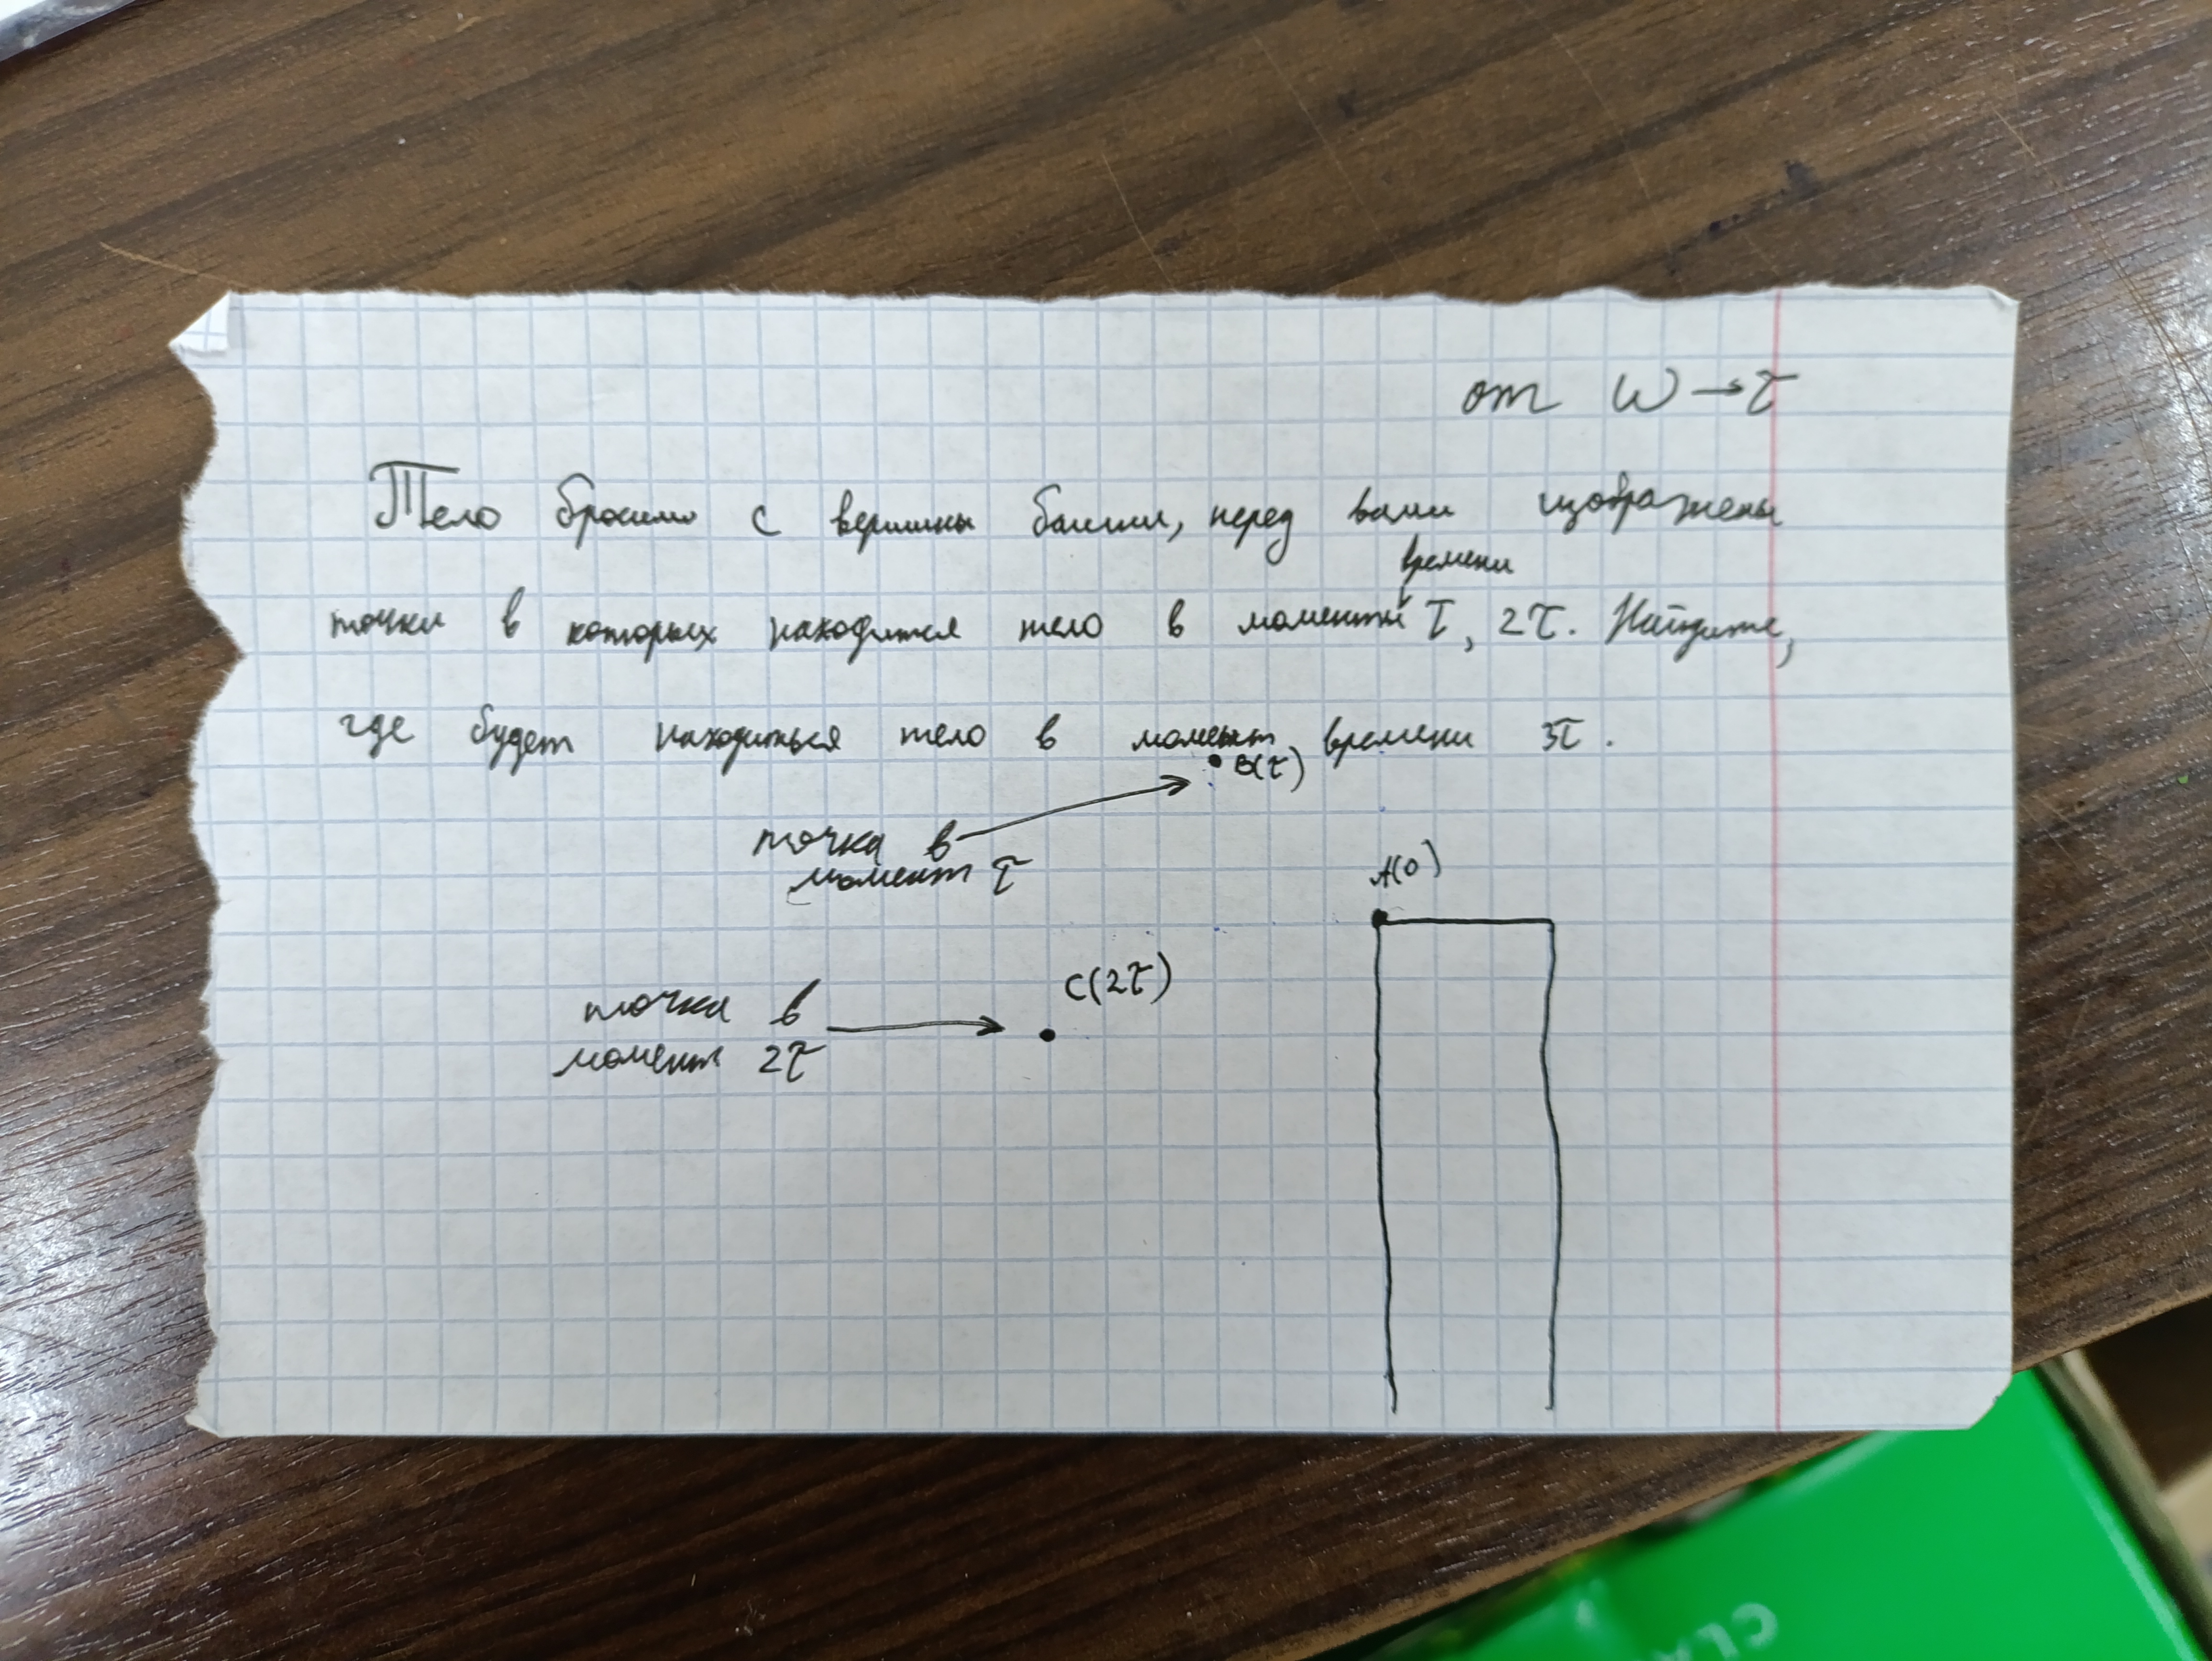 от W → τ
Тело бросили с вершины башни, перед вами изображены
времени
точки в которых находится тело в моменты τ, 2τ. Найдите,
где будет находиться тело в момент времени 3τ.
B(τ)
точка в
момент τ
A(0)
C(2τ)
точка в
момент 2τ
CLA